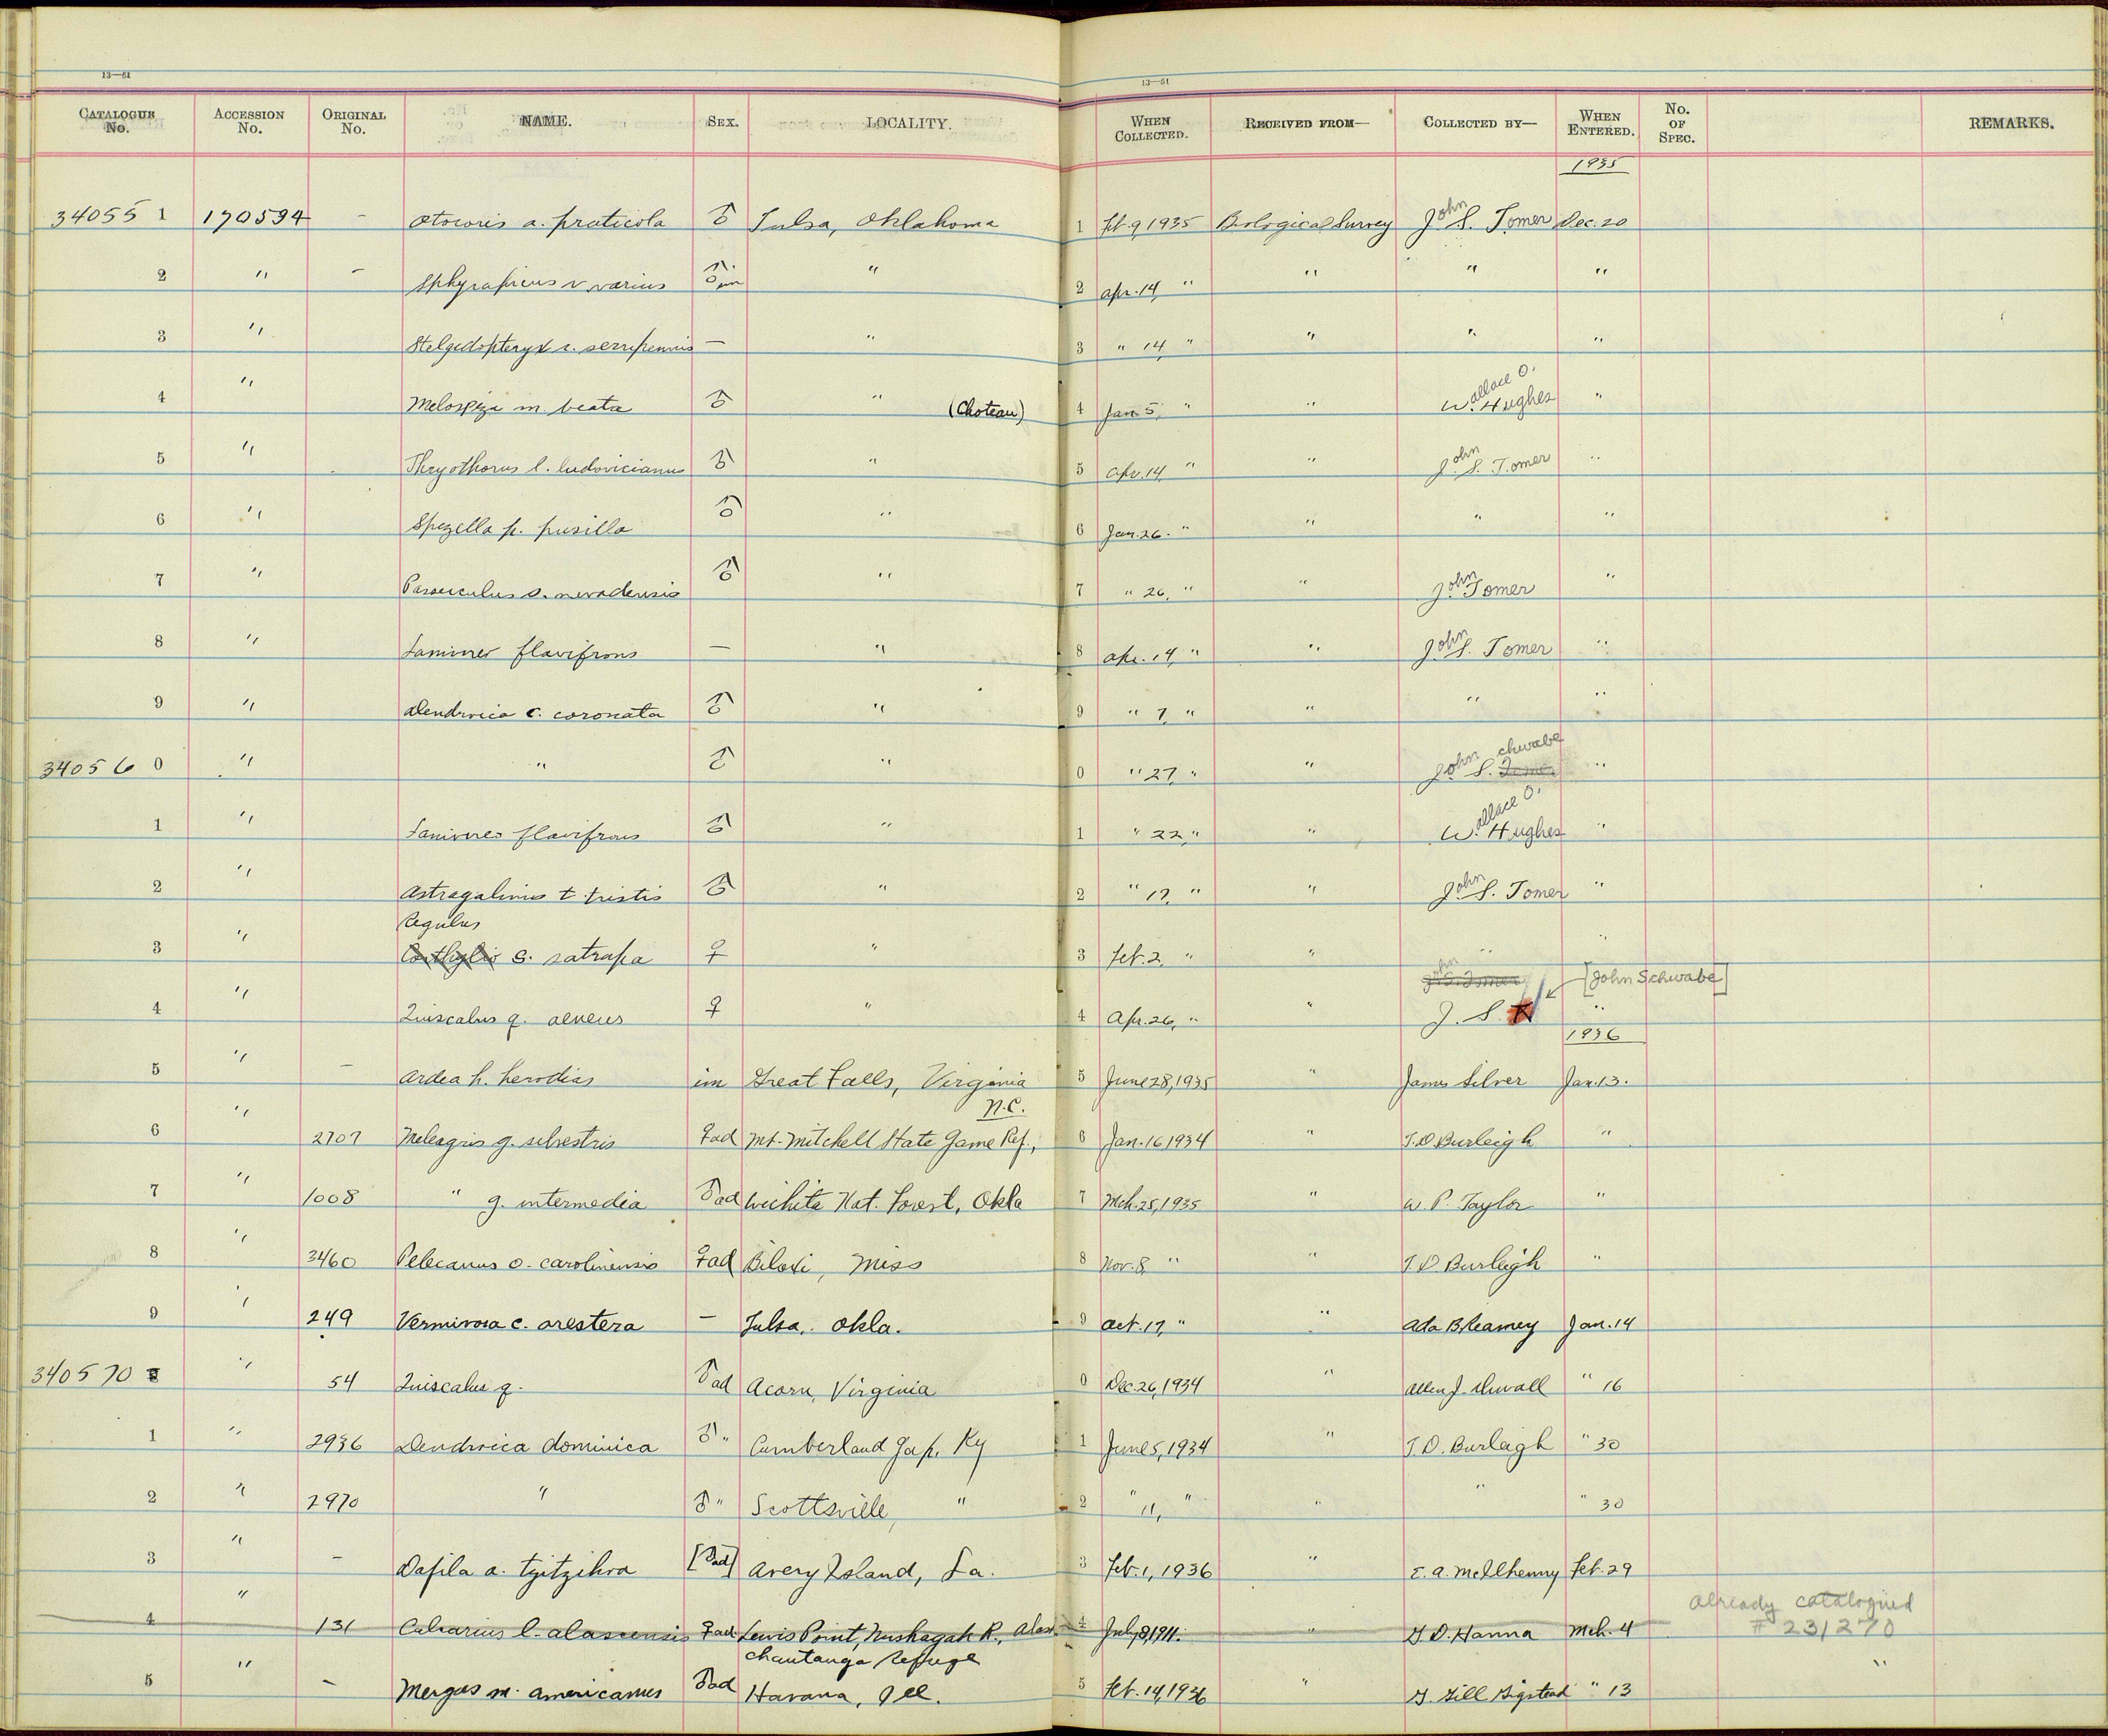 13—51
13—51
CATALOGUE No. ACCESSION No. ORIGINAL No. NAME. SEX. LOCALITY. WHEN COLLECTED. RECEIVED FROM— COLLECTED BY— WHEN ENTERED. No. OF SPEC. REMARKS.
1935
34055 1 170594 - Otocoris a. praticola ♂ Tulsa, Oklahoma 1 Feb. 9, 1935 Biological Survey John S. Tomer Dec. 20
2 " - Sphyrapicus v. varius ♂ im " 2 Apr. 14, " " " "
3 " Stelgidopteryx s. serripennis — " 3 " 14, " " " "
4 " Melospiza m. beata ♂ " (Choteau) 4 Jan. 5, " " Wallace O. Hughes "
5 " Thryothorus l. ludovicianus ♂ " 5 Apr. 14, " " John S. Tomer "
6 " Spizella p. pusilla ♂ " 6 Jan. 26. " " " "
7 " Passerculus s. nevadensis ♂ " 7 " 26, " " John Tomer "
8 " Lanivireo flavifrons — " 8 Apr. 14, " " John S. Tomer "
9 " Dendroica c. coronata ♂ " 9 " 7, " " " "
34056 0 " " ♂ " 0 " 27, " " John Schwabe Tomer "
1 " Lanivireo flavifrons ♂ " 1 " 22, " " Wallace O. Hughes "
2 " Astragalinus t. tristis ♂ " 2 " 17, " " John S. Tomer "
Regulus
3 " Corthylio s. satrapa ♀ " 3 Feb. 2, " " " "
John S. Tomer [John Schwabe]
4 " Quiscalus q. aeneus ♀ " 4 Apr. 26, " " J. S. "
1936
5 " — Ardea h. herodias im Great Falls, Virginia 5 June 28, 1935 " James Silver Jan. 13.
N.C.
6 " 2707 Meleagris g. silvestris ♀ad Mt. Mitchell State Game Ref., 6 Jan. 16, 1934 " T. D. Burleigh "
7 " 1008 " g. intermedia ♂ad Wichita Nat. Forest, Okla 7 Mch. 25, 1935 " W. P. Taylor "
8 " 3460 Pelecanus o. carolinensis ♀ad Biloxi, Miss 8 Nov. 8, " " T. D. Burleigh "
9 " 249 Vermivora c. orestera — Tulsa, Okla. 9 Oct. 17, " " Ada B. Reamey Jan. 14
340570 " 54 Quiscalus q. ♂ad Acorn, Virginia 0 Dec. 26, 1934 " Allen J. Duvall " 16
1 " 2936 Dendroica dominica ♂ " Cumberland Gap, Ky 1 June 5, 1934 " T. D. Burleigh " 30
2 " 2970 " ♂ " Scottsville, " 2 " 11, " " " " 30
3 " — Dafila a. tzitzihoa [♂ad] Avery Island, La. 3 Feb. 1, 1936 " E. A. McIlhenny Feb. 29
4 " 131 Calcarius l. alascensis ♀ad Lewis Point, Nushagak R., Alas. 4 July 8, 1911. " G. D. Hanna Mch. 4 Already catalogued # 231270
Chautauqua Refuge
5 " — Mergus m. americanus ♂ad Havana, Ill. 5 Feb. 14, 1936 " G. Hill " 13 "